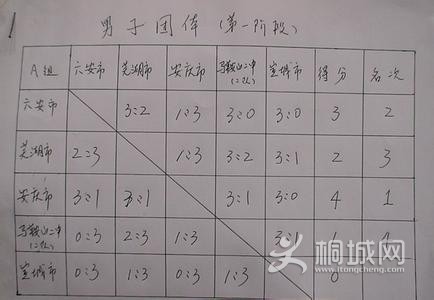 男子团体（第一阶段）
A组 六安市 芜湖市 安庆市 马鞍山二中（二队） 宣城市 得分 名次
六安市 3:2 1:3 3:0 3:0 3 2
芜湖市 2:3 1:3 3:2 3:1 2 3
安庆市 3:1 3:1 3:1 3:0 4 1
马鞍山二中（二队） 0:3 2:3 1:3 3:1 1 4
宣城市 0:3 1:3 0:3 1:3 0
桐城网
www.itongcheng.com